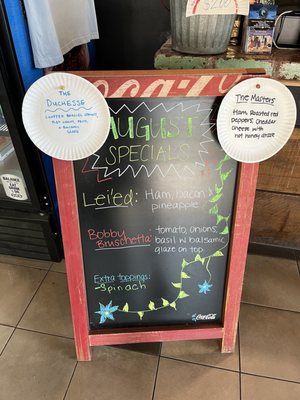 $2.00
The
Duchesse
The Masters
Ham, Roasted red
peppers, cheddar
cheese with
hot honey drizzle
Coca-Cola
AUGUST
SPECIALS
Lei'ed: Ham, bacon &
pineapple
Bobby
Bruschetta: tomato, onions,
basil w balsamic
glaze on top
Extra toppings:
-Spinach
Coca-Cola